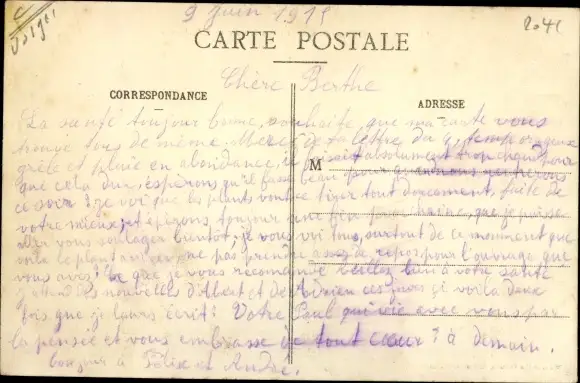 9 Juin 1915
2041
Vosges
CARTE POSTALE
Chère Berthe
CORRESPONDANCE
ADRESSE
M
La santé toujours bonne, souhaite que ma carte vous
trouve tous de même. Merci de ta lettre du 4, temp orageux
grêle et pluie en abondance, il faisait absolument trop chaud pour
que cela dur, espérons qu'il fasse beau pour
ce soir : je voi que les plants vont se tiger tout doucement, faite de
votre mieux, et espérons toujours une fin prochaine, que je puisse
aller vous soulager bientôt, je vous voi tous, surtout de ce moment que
voila le plant arriver ne pas prendre assez de repos pour l'ouvrage que
vous avez : Ce que je vous recomande veillez bien à votre santé
j'attend les nouvelles d'Albert et de ces jours ci voila deux
fois que je leurs écrit : Votre Paul qui vie avec vous par
la pensée et vous embrasse de tout cœur : à demain.
bonjour à Félix et André.